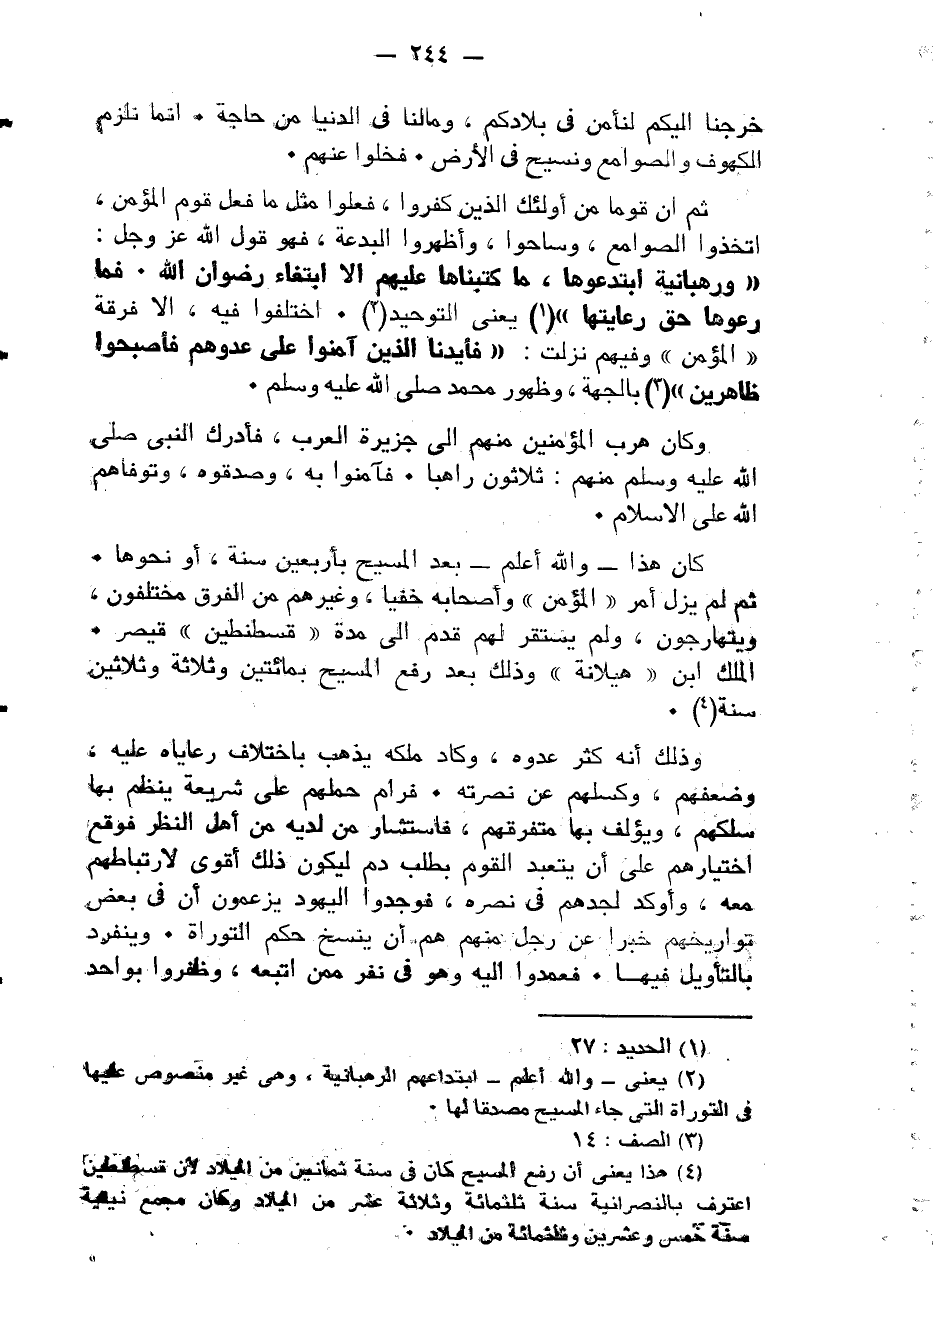 — ٢٤٤ —
خرجنا اليكم لنأمن فى بلادكم ، ومالنا فى الدنيا من حاجة • انما نلزم
الكهوف والصوامع ونسيح فى الأرض • فخلوا عنهم •
ثم ان قوما من أولئك الذين كفروا ، فعلوا مثل ما فعل قوم المؤمن ،
اتخذوا الصوامع ، وساحوا ، وأظهروا البدعة ، فهو قول الله عز وجل :
« ورهبانية ابتدعوها ، ما كتبناها عليهم الا ابتغاء رضوان الله • فما
رعوها حق رعايتها »(١) يعنى التوحيد(٢) • اختلفوا فيه ، الا فرقة
« المؤمن » وفيهم نزلت : « فأيدنا الذين آمنوا على عدوهم فأصبحوا
ظاهرين »(٣) بالجهة ، وظهور محمد صلى الله عليه وسلم •
وكان هرب المؤمنين منهم الى جزيرة العرب ، فأدرك النبى صلى
الله عليه وسلم منهم : ثلاثون راهبا • فآمنوا به ، وصدقوه ، وتوفاهم
الله على الاسلام •
كان هذا — والله أعلم — بعد المسيح بأربعين سنة ، أو نحوها •
ثم لم يزل أمر « المؤمن » وأصحابه خفيا ، وغيرهم من الفرق مختلفون ،
ويتهارجون ، ولم يستقر لهم قدم الى مدة « قسطنطين » قيصر •
الملك ابن « هيلانة » وذلك بعد رفع المسيح بمائتين وثلاثة وثلاثين
سنة(٤) •
وذلك أنه كثر عدوه ، وكاد ملكه يذهب باختلاف رعاياه عليه ،
وضعفهم ، وكسلهم عن نصرته • فرام حملهم على شريعة ينظم بها
سلكهم ، ويؤلف بها متفرقهم ، فاستشار من لديه من أهل النظر فوقع
اختيارهم على أن يتعبد القوم بطلب دم ليكون ذلك أقوى لارتباطهم
معه ، وأوكد لجدهم فى نصره ، فوجدوا اليهود يزعمون أن فى بعض
تواريخهم خبرا عن رجل منهم هم أن ينسخ حكم التوراة • وينفرد
بالتأويل فيها • فعمدوا اليه وهو فى نفر ممن اتبعه ، وظفروا بواحد
(١) الحديد : ٢٧
(٢) يعنى — والله أعلم — ابتداعهم الرهبانية ، وهى غير منصوص عليها
فى التوراة التى جاء المسيح مصدقا لها •
(٣) الصف : ١٤
(٤) هذا يعنى أن رفع المسيح كان فى سنة ثمانين من الميلاد لأن قسطنطين
اعترف بالنصرانية سنة ثلثمائة وثلاثة عشر من الميلاد وكان مجمع نيقية
سنة خمس وعشرين وثلثمائة من الميلاد •